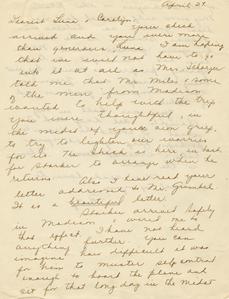 April 29.
Dearest Lucie & Carolyn,
your check
arrived and you were more
than generous. I am hoping
that we will not have to go
into it at all as Mr. Schaefer
told me that Mr. Miles & some
of the men from Madison
wanted to help with the trip
you were thoughtful, in
the midst of your own grief,
to try to lighten our worries
for us. The check is here in bank
for Stocker to arrange when he
returns.
Also I have read your
letter addressed to Mr. Grumbel.
It is a beautiful letter.
arrived safely
in Madison & wired me to
that effect. I have not heard
anything further. You can
imagine how difficult it was
for him to muster self control
enough to board the plane and
set for that long day in the midst